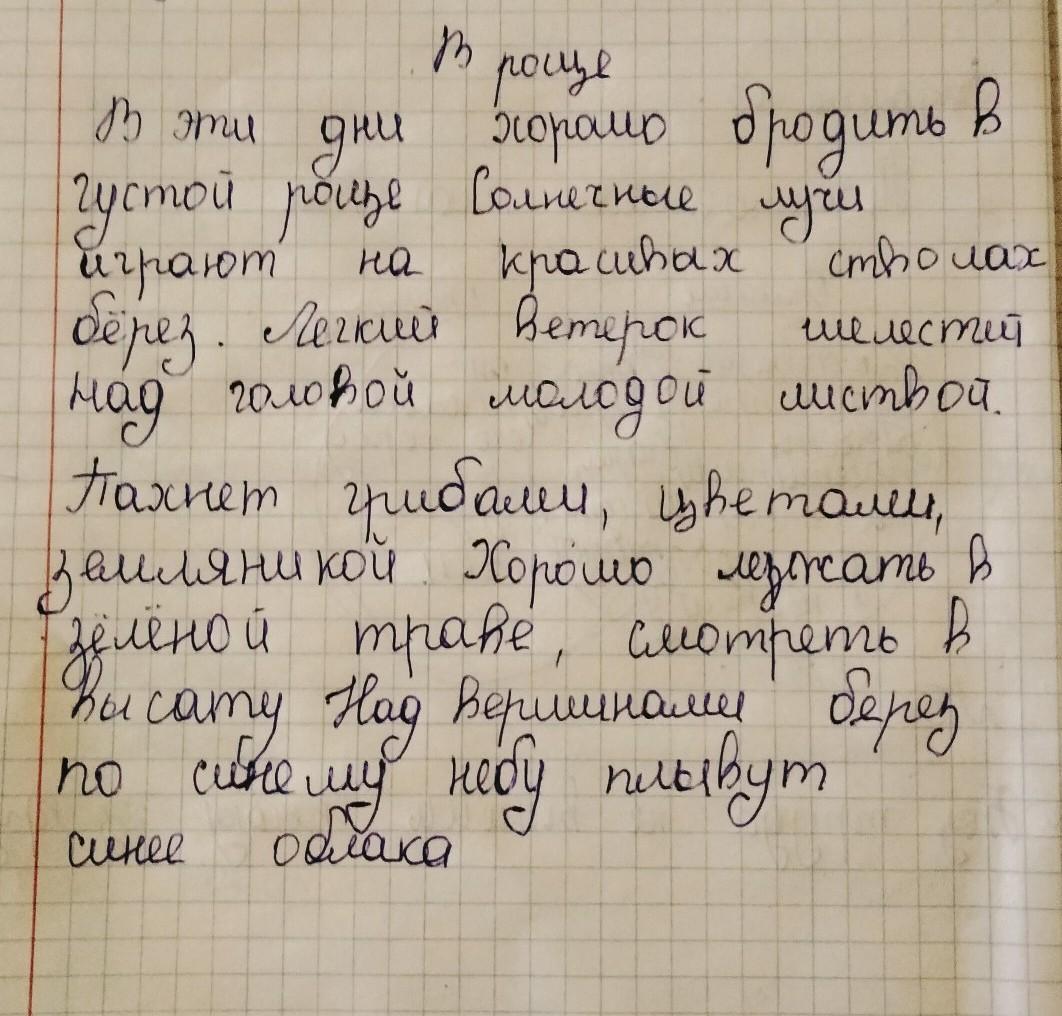 В роще
В эти дни хорошо бродить в
густой роще Солнечные лучи
играют на красивых стволах
бёрез. Легкий ветерок шелестий
над головой молодой листвой.
Пахнет грибами, цветами,
земляникой. Хорошо лежать в
зёлёной траве, смотреть в
высату Над вершинами берез
по синему небу плывут
синее облака